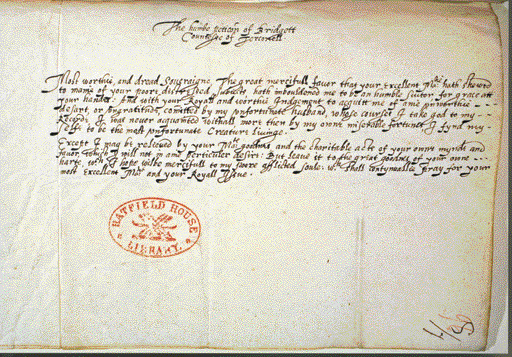 The humbe peticon of Bridgett
Countesse of Tercenell
Most worthie and dread Soveraigne. The great mercifull favor that your Excellent Matie hath shewed
to manie of your poore distressed subiects hath imboldened me to be an humble suitor for grace att
your handes. And with your Royall and woorthie Iudgement to acquitt me of anie
desart or Ingratitude comitted by my unfortunate husband, whose courses I take god to my
Record, I was never aquainted withall more then by my owne miserable fortune I fynd my
selfe to be the most unfortunate Creature livinge.
Except I may be releived by your Mats goodnes and the charitable acte of your owne mynde and
favor, which I will not in anie perticuler desire: But leave it to the great goodnes of your owne
harte, wch I hope wilbe mercifull to my poore afflicted soule: wch shall contynually pray for your
most Excellent Matie and your Royall Yssue.
HATFIELD HOUSE
LIBRARY